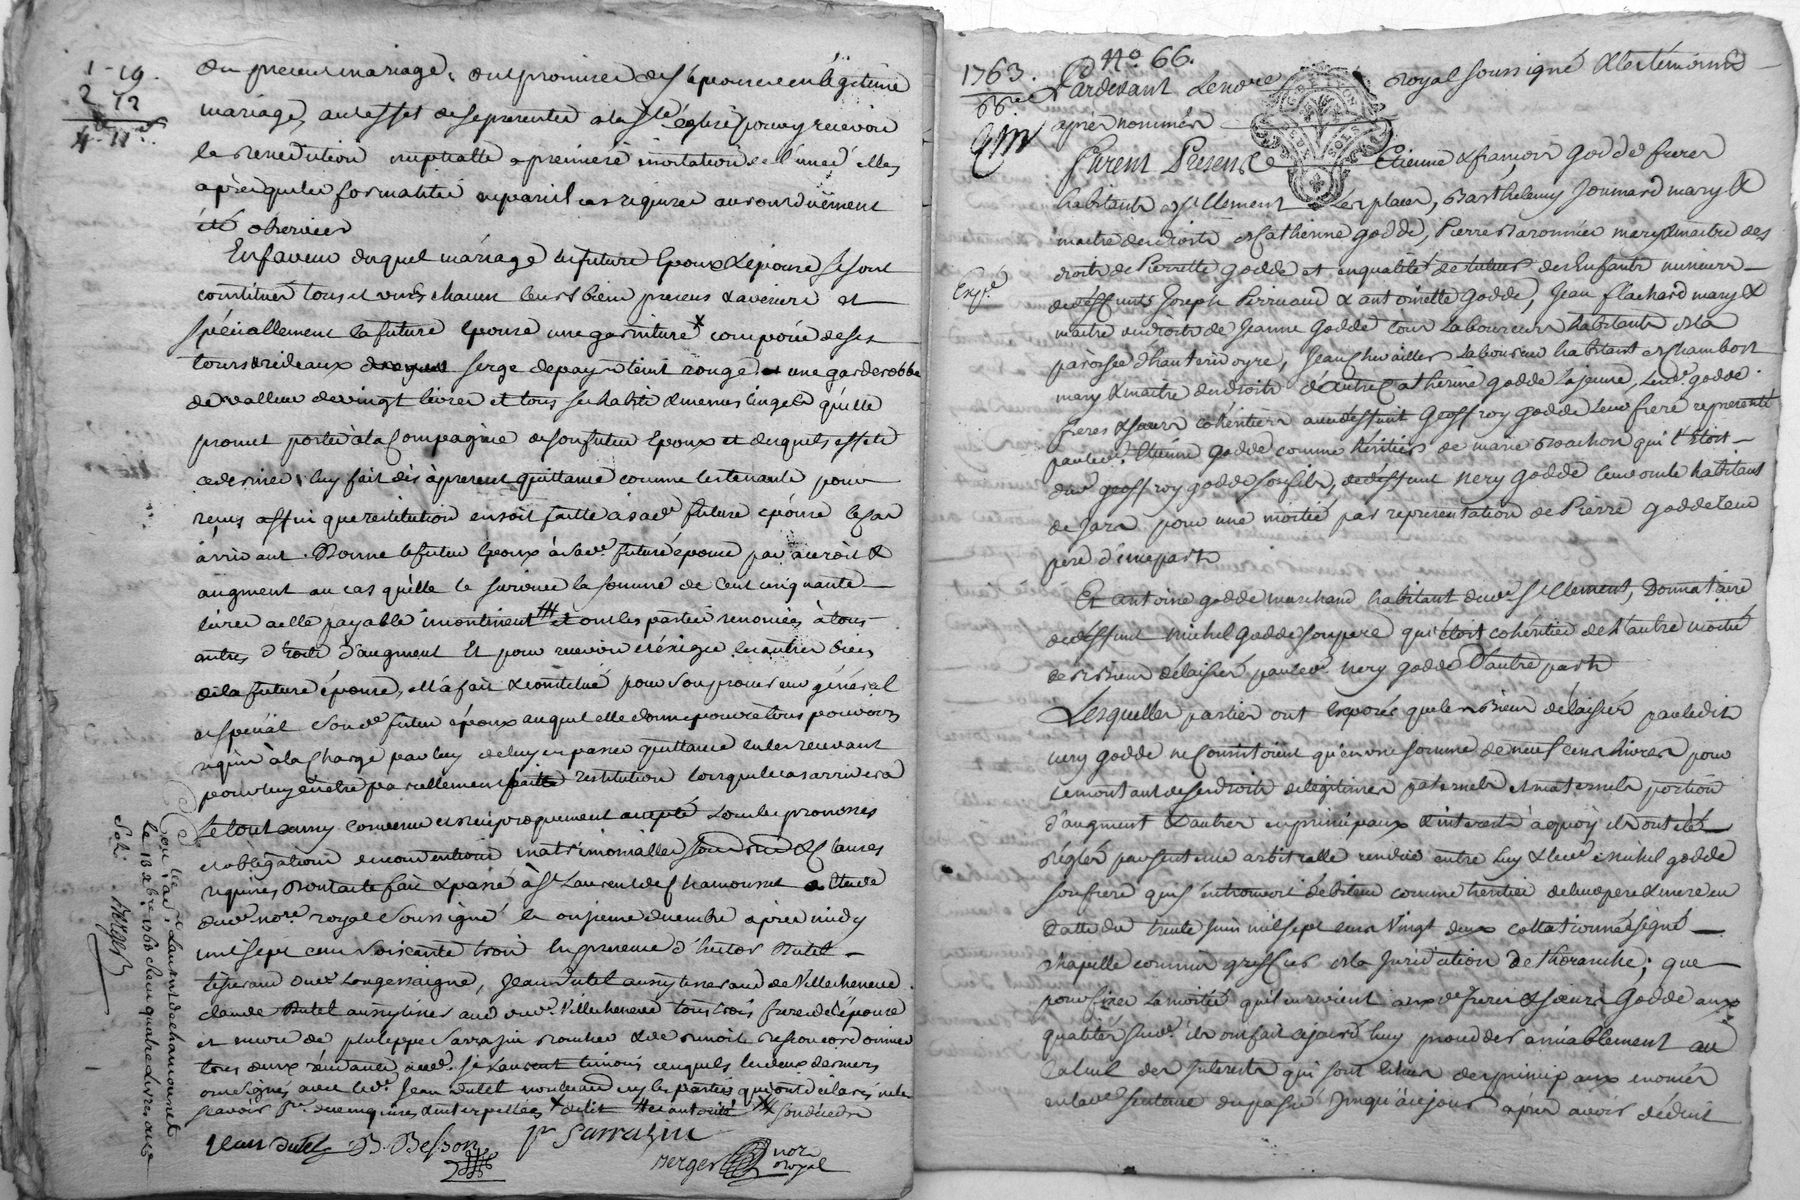 1 - 19.
2 12
4 - 11 s
du precedent mariage, ont promis de s'epouser en légitime
mariage, aux effets de se presenter a la ste église pour y recevoir
la benediction nuptialle a premiere invitation de l'une d'elles
après que les formalités en pareil cas requises auront duëment
été observées
En faveur duquel máriage les futurs Epoux & épouse se sont
constitués tous et uns chacuns leurs biens presens & avenirs et
spéciallement la future Epouse une garniture x composée de ses
tours & rideaux serge de pays teint rouge et une garderobbe
de valleur de vingt livres et tous ses habits & menus linges qu'elle
promet porter à la Compagnie de son futur Epoux et desquels effets
ce dernier luy fait dès à present quittance comme les tenants pour
reçus affin que restitution en soit faitte à sa de future épouse le cas
arrivant. Donne le futur Epoux à sa de future épouse par accroit &
augment au cas qu'elle le survive la somme de Cent cinquante
livres a elle payable incontinent et ont les parties renoncées à tous
autres droits d'augment Et pour recevoir et éxiger les autres biens
de la future épouse, ell'a fait & constitué pour son procureur général
et spécial son d futur époux auquel elle donne pouvoir tous pouvoirs
requis à la Charge par luy de luy en passer quittance en les recevant
pour luy en être pareillement faitte restitution lorsque le cas arrivera
Le tout ainsy convenu et reciproquement accepté sous les promesses
et obligations de conventions matrimonialles & Clauses
requises Dont acte fait & passé à St Laurent de Chamousset Etude
du d. nore royal soussigné le onzieme decembre après midy
mil sept cens soixante trois En presence d'hector Dutel
tisserand du d. Longessaigne, Jean Dutel aussy tisserand de Villecheneve
Claude Dutel aussy tisserand du d. Villecheneve tous trois freres de l'épouse
et encore de philippe Sarrasin & de benoit Besson cordonnier
tous deux demeurants au d. St Laurent temoins lesquels les deux derniers
ont signés avec le d. Jean Dutel non les parties qui ont declarés ne le
scavoir de ce enquises & interpellées
Jean Dutel B. Besson p Sarrasin
Berger nore royal
Con lle a St Laurent de chamousset
le 13 xbre 1763 Reçu quatre Livres onze
Sols. Berger
1763.
66e
No. 66.
Expé.
Pardevant Le nore royal soussigné & les témoins
après nommés
Furent Presens Etienne & françois Godde freres
habitants de St Clement Les places, Barthelemy Joumard mary &
maitre des droits de Catherine godde, Pierre Baronnier mary & maitre des
droits de Pierrette godde et en qualité de tuteur des Enfants mineurs
de deffunts Joseph Perrucaud & antoinette Godde, Jean flachard mary &
maitre des droits de Jeanne Godde tous Laboureurs habitants de la
paroisse d'hauterivoyre, Jean Chevallier Laboureur habitant de chambost
mary & maitre des droits d'autre Catherine godde la jeune, Les d. godde
freres & sœurs cohéritiers au deffunt Geoffroy godde leur frere representé
par le d. Etienne godde comme héritier de marie Brachon qui l'étoit
du d. geoffroy godde son fils, de deffunt nery godde leur oncle habitant
de Jara pour une moitié par representation de Pierre godde leur
pere d'une part
Et antoine godde marchand habitant du d. St Clement, Donnataire
de deffunt michel Godde son pere qui étoit cohéritier de l'autre moitié
de ses Biens délaissés par le d. nery godde D'autre part
Lesquelles parties ont Exposés que les Biens délaissés par ledit
nery godde ne Consistoient qu'en une somme de neuf cens livres pour
le montant de ses droits de légitimes paternels et maternels portion
d'augment & autres en principaux & interests à quoy ils ont été
réglés par sentence arbitralle rendue entre Luy & le d. michel godde
son frere qui s'en trouvoit débiteur comme heritier de leurs pere & mere en
datte du trente Juin mil sept cens Vingt deux collationnée signé
chapelle commis greffier de la Juridiction de thoranche; que
pour fixer la moitié qu'il en revient aux d. freres & sœurs Godde aux
qualités sus d. ils ont fait ajourd'huy proceder amiablement au
Calcul des Interests qui sont échus des principaux énoncés
en la d. sentence du passé Jusqu'à ce jour après avoir déduit